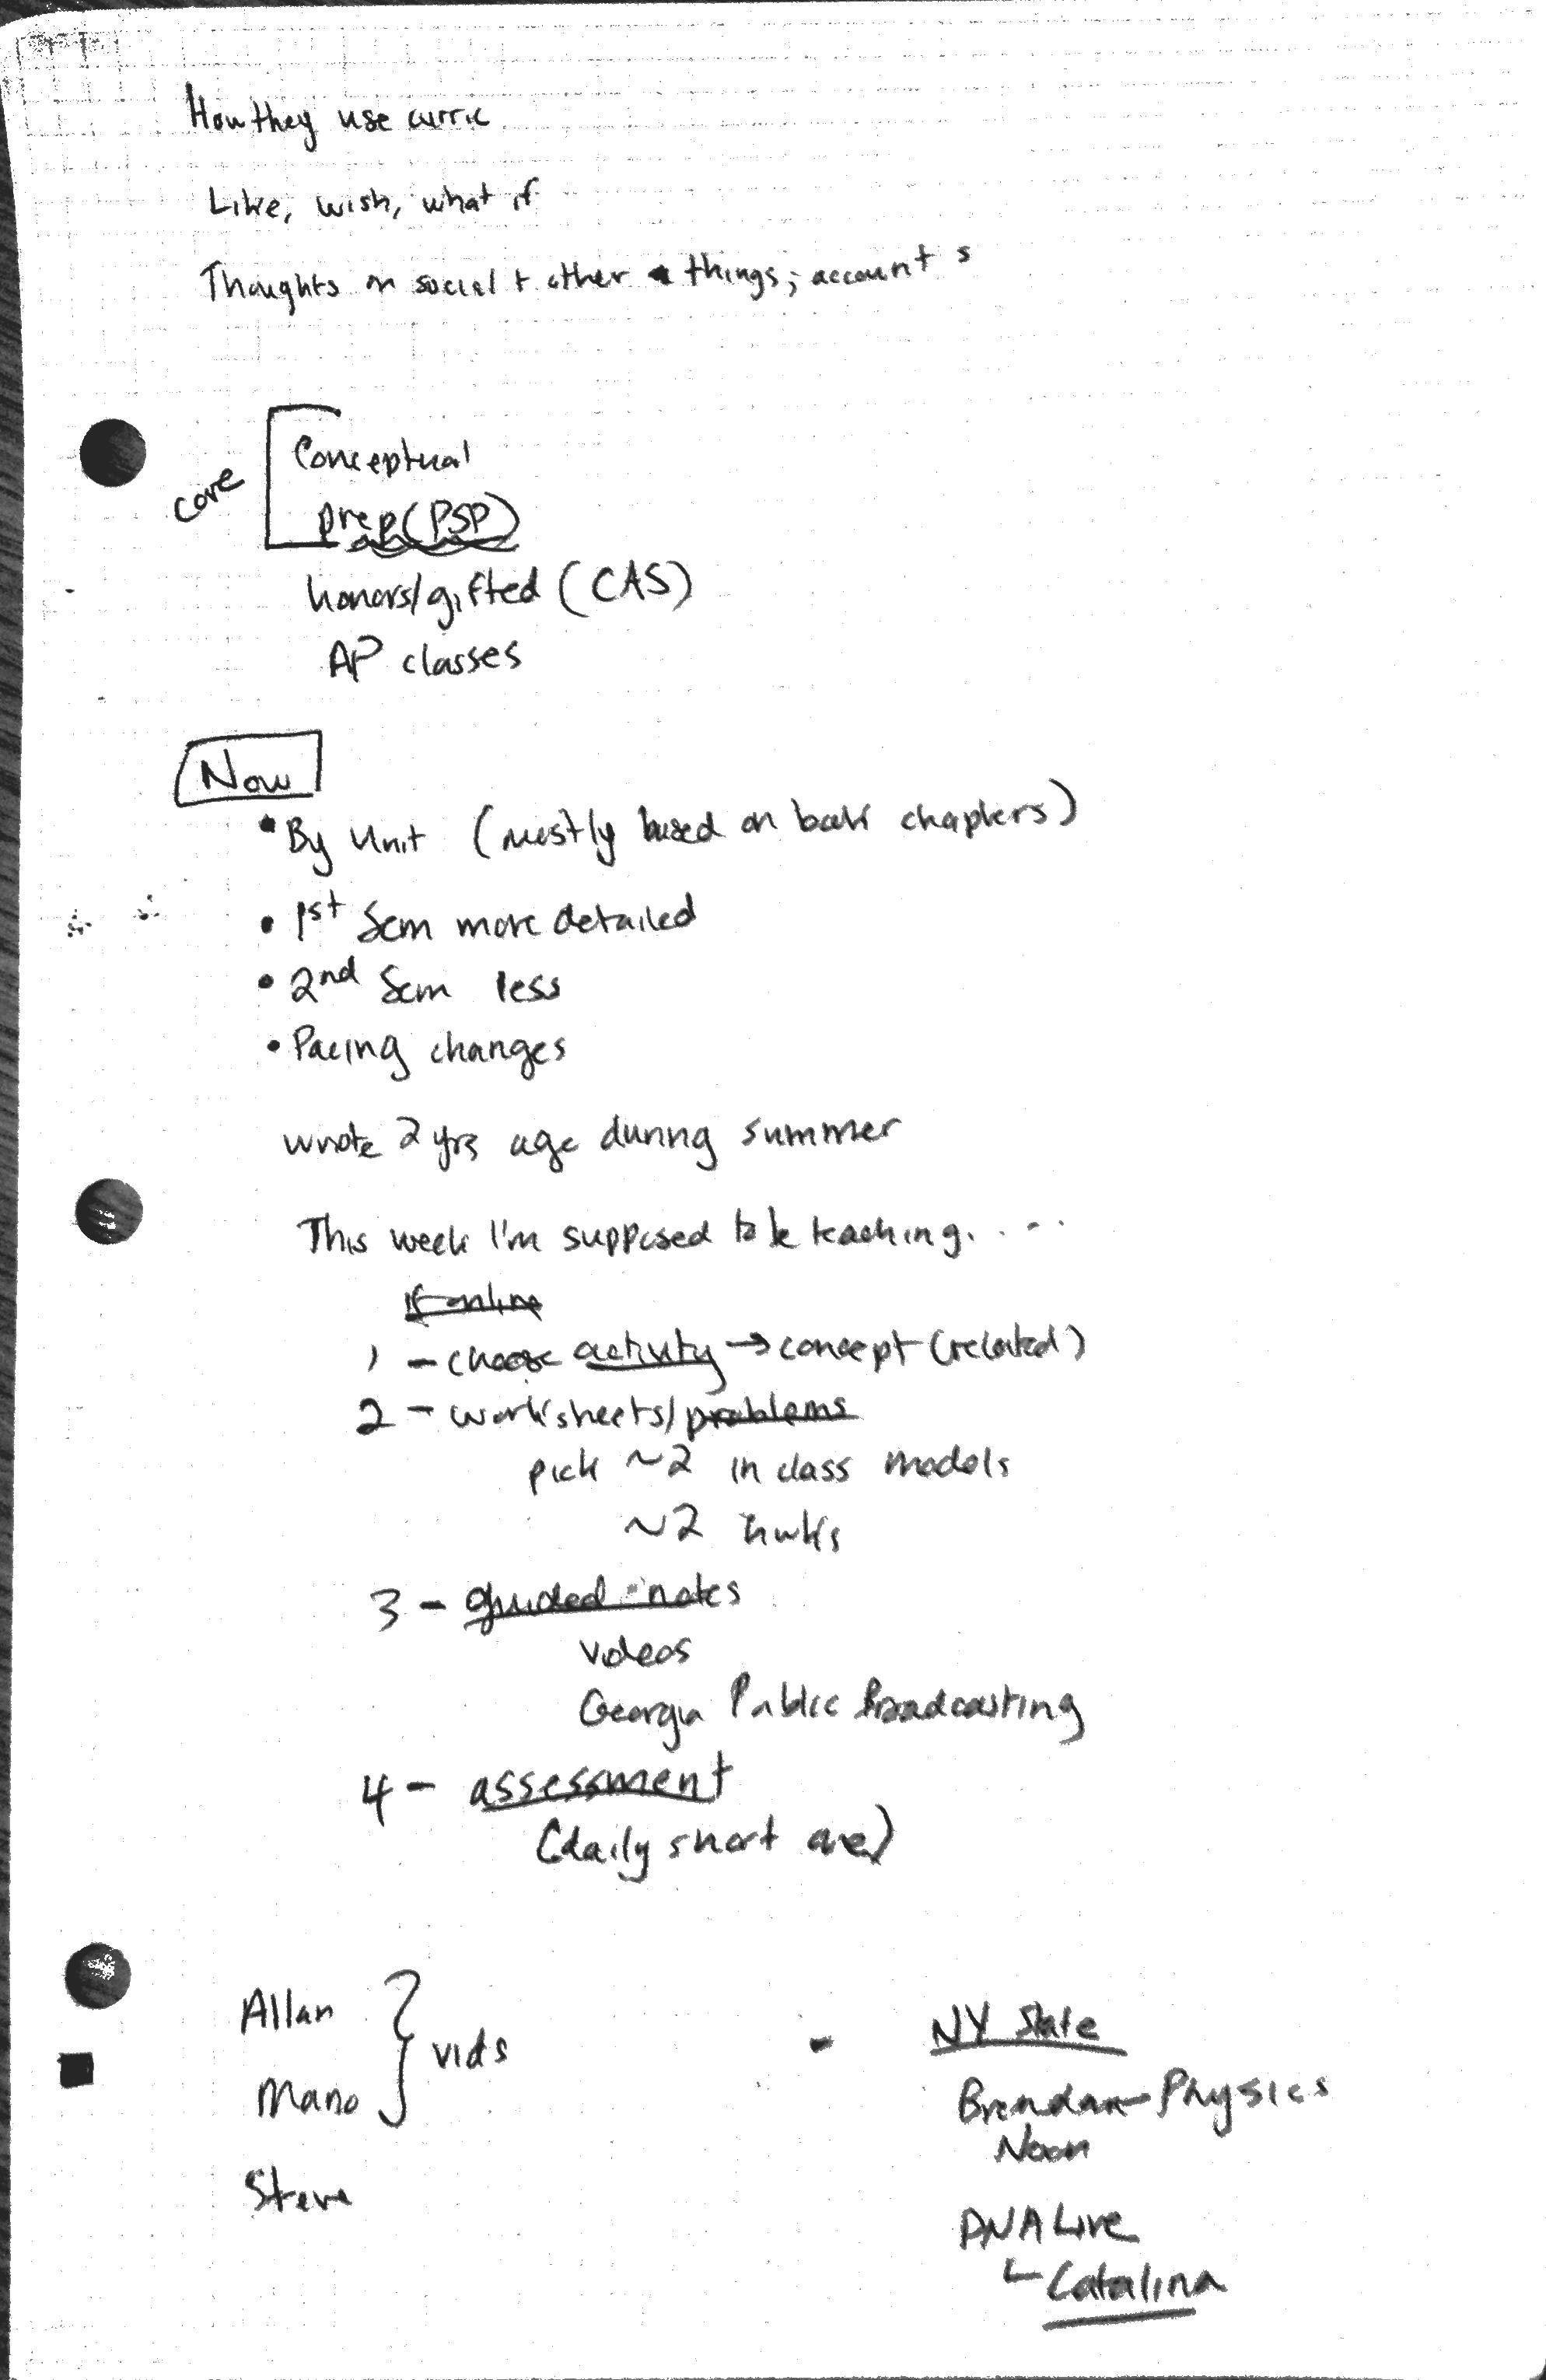 How they use curric
Like, wish, what if
Thoughts on social + other things; accounts
core
Conceptual
prep (PSP)
honors/gifted (CAS)
AP classes
Now
• By Unit (mostly based on book chapters)
• 1st Sem more detailed
• 2nd Sem less
• Pacing changes
wrote 2 yrs ago during summer
This week I'm supposed to be teaching.....
if online
1 - choose activity → concept (related)
2 - worksheets/problems
pick ~2 in class models
~2 hwks
3 - guided notes
videos
Georgia Public Broadcasting
4 - assessment
(daily short one)
Allan
Mano
} vids
Steve
- NY State
Brendan - Physics
Noon
DNA Live
Catalina